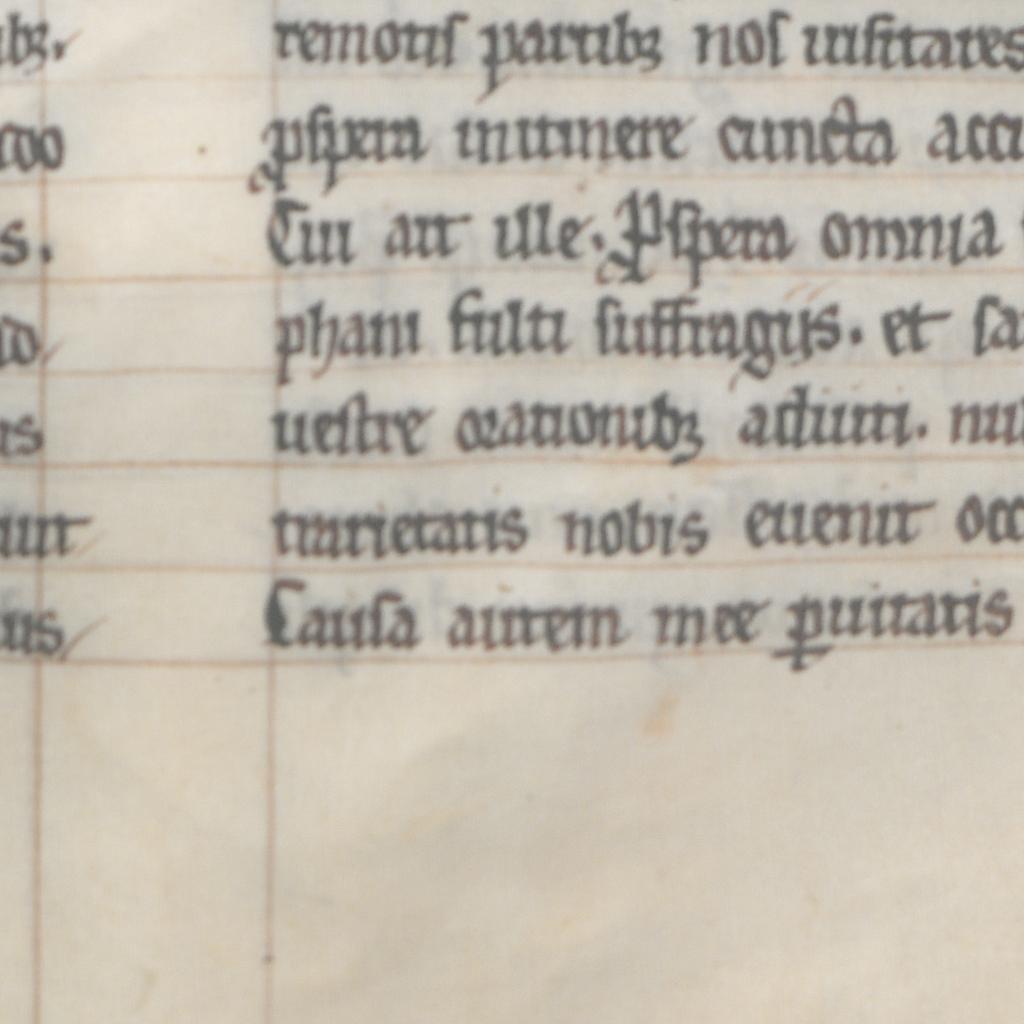 ibꝫ.
coo
s.
us
remotiſ partibꝫ noſ uiſitates
ꝓſpera in itinere cuncta accu
Cui ait ille. Ꝓſpera omnia
phani fulti ſuffragijs. et ſa
ueſtre orationibꝫ adiuti. nu
trarietatis nobis euenit occ
Cauſa autem mee ꝑuitatis